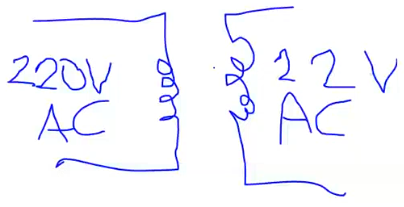 220V
AC
12V
AC